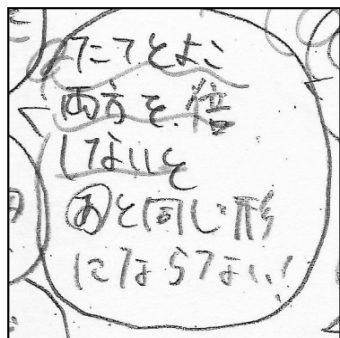 たてとよこ
両方を倍
しないと
あと同じ形
にならない!